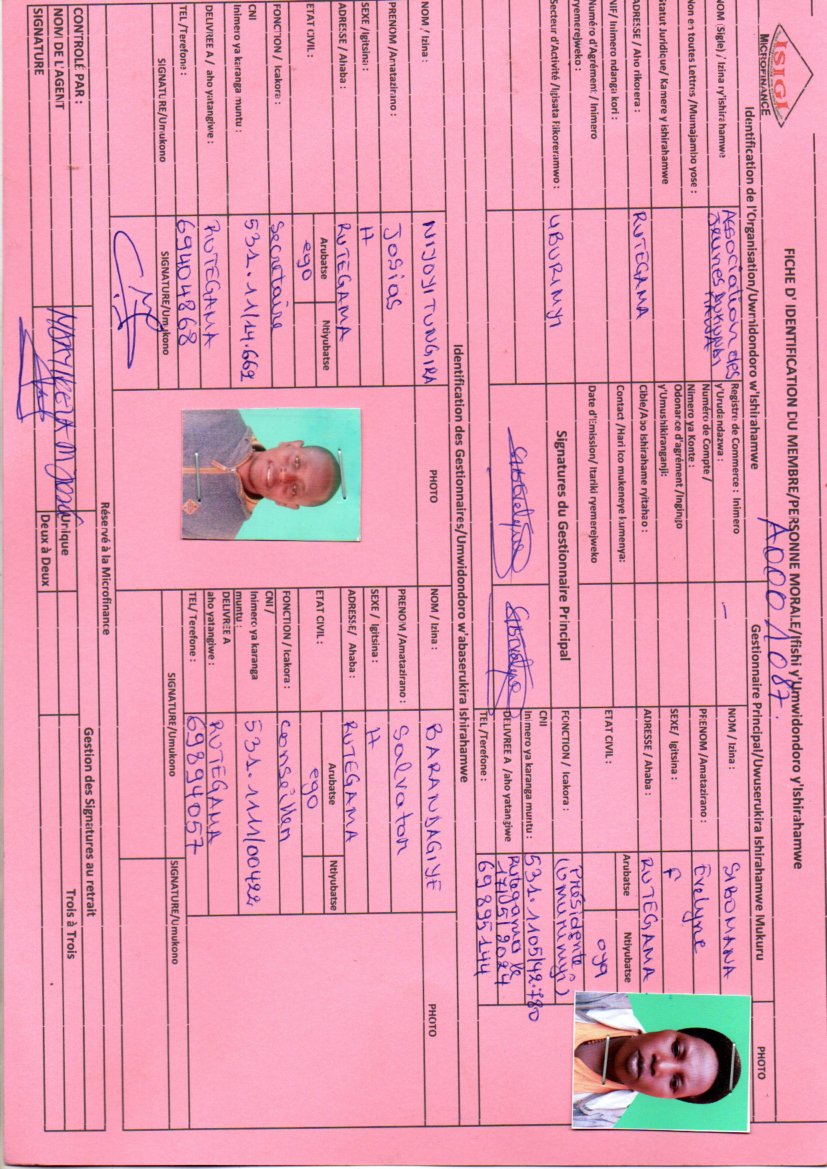 ISIGI
MICROFINANCE
FICHE D' IDENTIFICATION DU MEMBRE/PERSONNE MORALE/Ifishi y'Umwidondoro y'Ishirahamwe
A0001087.
Identification de l'Organisation/Uwmidondoro w'Ishirahamwe
Gestionnaire Principal/Uwuserukira Ishirahamwe Mukuru
PHOTO
NOM (Sigle) / Izina ry'ishirahamwe
Association des
Jeunes
Non en toutes Lettres /Mumajambo yose :
Statut Juridique/ Kamere y ishirahamwe
ADRESSE / Aho rikorera :
RUTEGAMA
NIF/ Inimero ndanga kori :
Numéro d'Agrément / Inimero
ryemerejweko :
Secteur d'Activité /Igisata Rikoreramwo :
UBURIMYI
Registre de Commerce : Inimero
y'Urudandazwa :
Numéro de Compte /
Nimero ya Konte :
Odonance d'agrément /Ingingo
y'Umushikiranganji:
Cible/Abo Ishirahame ryitaho :
Contact /Hari ico mukeneye kumenya:
Date d'Emission/ Itariki ryemerejweko
Signatures du Gestionnaire Principal
NOM / Izina :
SIBOMANA
PRENOM /Amatazirano :
Evelyne
SEXE/ Igitsina :
F
ADRESSE / Ahaba :
RUTEGAMA
ETAT CIVIL :
Arubatse
Ntiyubatse
oya
FONCTION / Icakora :
Présidente
(Umurimyi)
CNI
Inimero ya karanga muntu :
531.1105/42.780
DELIVREE A /aho yatangiwe
Rutegama le
17/05/2024
TEL /Terefone :
69895144
Identification des Gestionnaires/Umwidondoro w'abaserukira Ishirahamwe
NOM / Izina :
NIJOYITUNGIRA
PHOTO
PRENOM /Amatazirano :
Josias
SEXE /Igitsina :
H
ADRESSE / Ahaba :
RUTEGAMA
ETAT CIVIL :
Arubatse
Ntiyubatse
ego
FONCTION / Icakora :
Secrétaire
CNI
Inimero ya karanga muntu :
531.11/14.669
DELIVREE A / aho yatangiwe :
RUTEGAMA
TEL /Terefone :
69404868
SIGNATURE/Umukono
SIGNATURE/Umukono
NOM / Izina :
BARANDAGIYE
PHOTO
PRENOM /Amatazirano :
Salvator
SEXE / Igitsina :
H
ADRESSE/ Ahaba :
RUTEGAMA
ETAT CIVIL :
Arubatse
Ntiyubatse
ego
FONCTION / Icakora :
Conseiller
CNI /
Inimero ya karanga
muntu :
531.1111/00422
DELIVREE A
aho yatangiwe :
RUTEGAMA
TEL/ Terefone :
69894057
SIGNATURE/Umukono
SIGNATURE/Umukono
Réservé à la Microfinance
CONTROLE PAR :
NOM DE L'AGENT
SIGNATURE
Gestion des Signatures au retrait
Unique
Deux à Deux
Trois à Trois